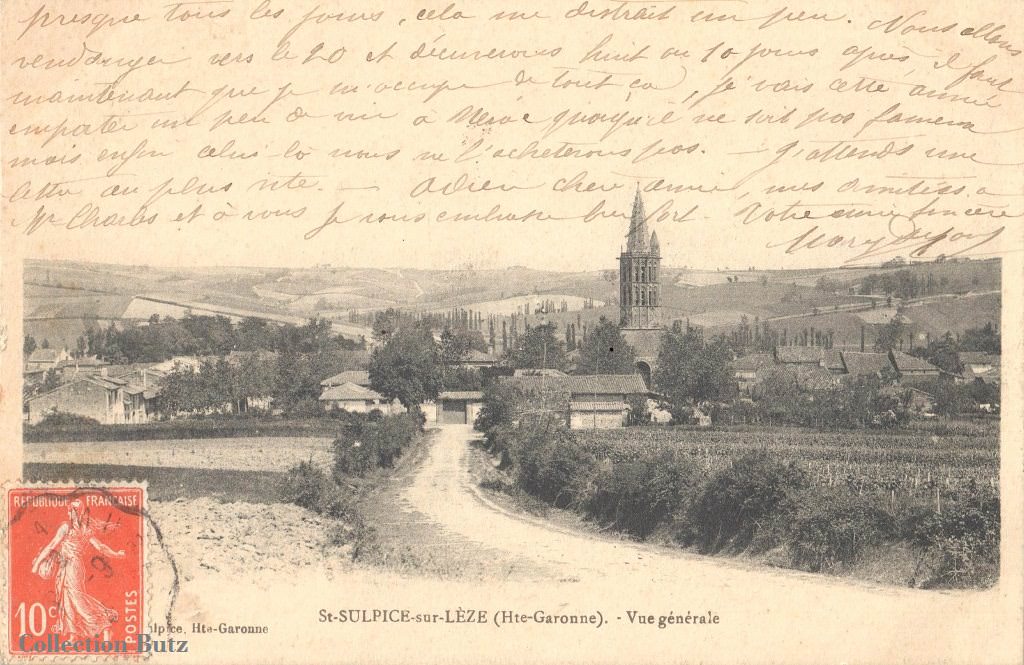 presque tous les jours, cela me distrait un peu. Nous allons
vendanger vers le 20 et décuverons huit ou 10 jours après, il faut
maintenant que je m'occupe de tout ça, je vais cette année
empater un peu de vin à quoiqu'il ne soit pas fameux
mais enfin celui là nous ne l'acheterons pas. — J'attends une
lettre au plus vite. — Adieu chère amie, mes amitiés à
Mr Charles et à vous je vous embrasse bien fort. Votre amie sincère
REPUBLIQUE FRANÇAISE
10c POSTES
St-SULPICE-sur-LÈZE (Hte-Garonne). - Vue générale
lpice, Hte-Garonne
Collection Butz